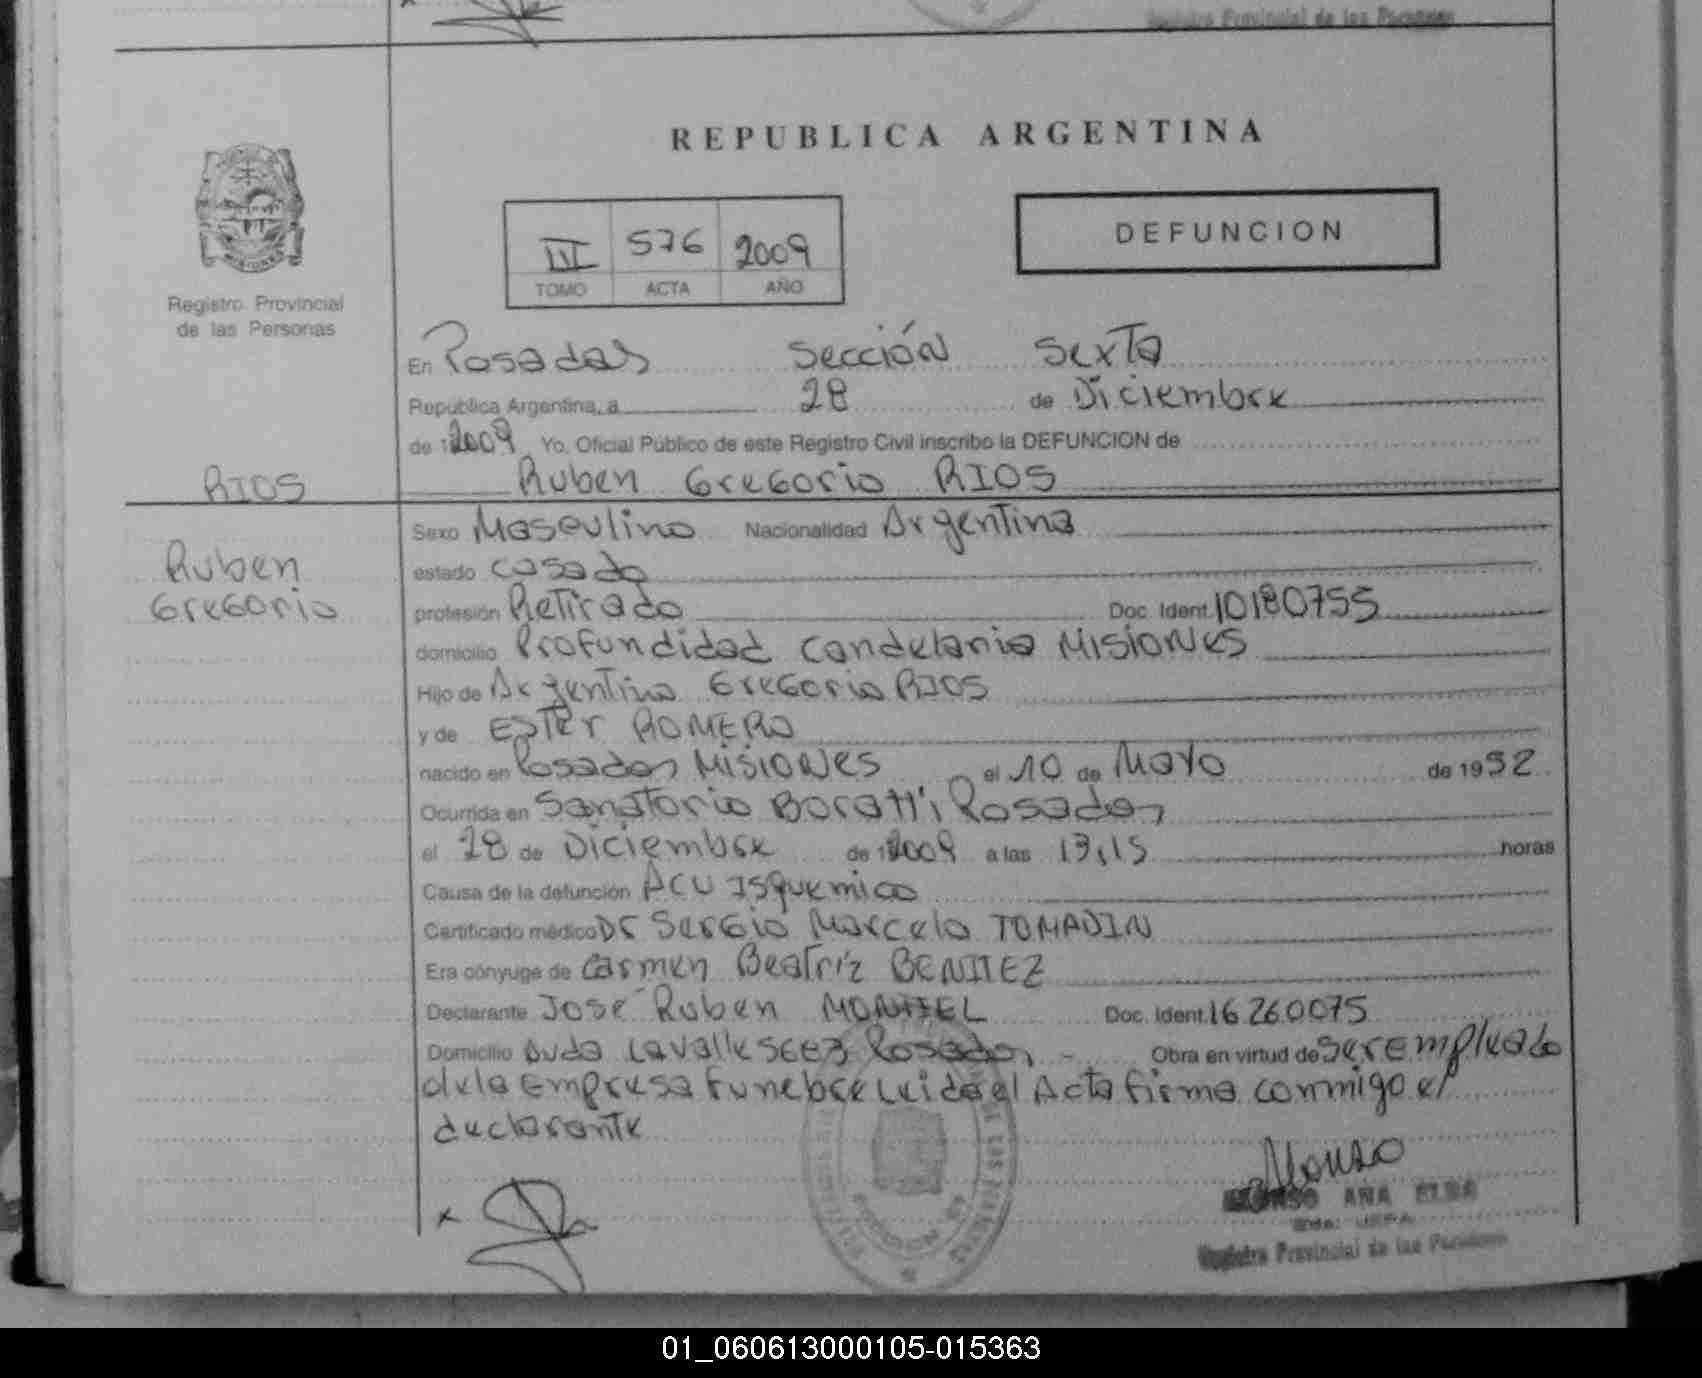 Registro Provincial de las Personas
REPUBLICA ARGENTINA
MISIONES
Registro Provincial
de las Personas
DEFUNCION
III 576 2009
TOMO ACTA AÑO
En Posadas Sección Sexta
República Argentina, a 28 de Diciembre
de 2009 Yo, Oficial Público de este Registro Civil inscribo la DEFUNCION de
RIOS
Ruben Gregorio RIOS
Ruben
Gregorio
Sexo Masculino Nacionalidad Argentina
estado casado
profesión Retirado Doc. Ident. 10180755
domicilio Profundidad Candelaria MISIONES
Hijo de Argentino Gregorio RIOS
y de ESTER ROMERO
nacido en Posadas MISIONES el 10 de Mayo de 1952
Ocurrida en Sanatorio Boratti Posadas
el 28 de Diciembre de 2009 a las 13,15 horas
Causa de la defunción ACV Isquemico
Certificado médico Dr Sergio Marcelo TOMADIN
Era cónyuge de Carmen Beatriz BENITEZ
Declarante José Ruben MONTIEL Doc. Ident. 16260075
Domicilio Avda Lavalle 5663 Posadas - Obra en virtud de ser empleado
de la Empresa Funebre Leida el Acta firma conmigo el
declarante
Alonso
ALONSO ANA ELBA
Registro Provincial de las Personas
01_060613000105-015363